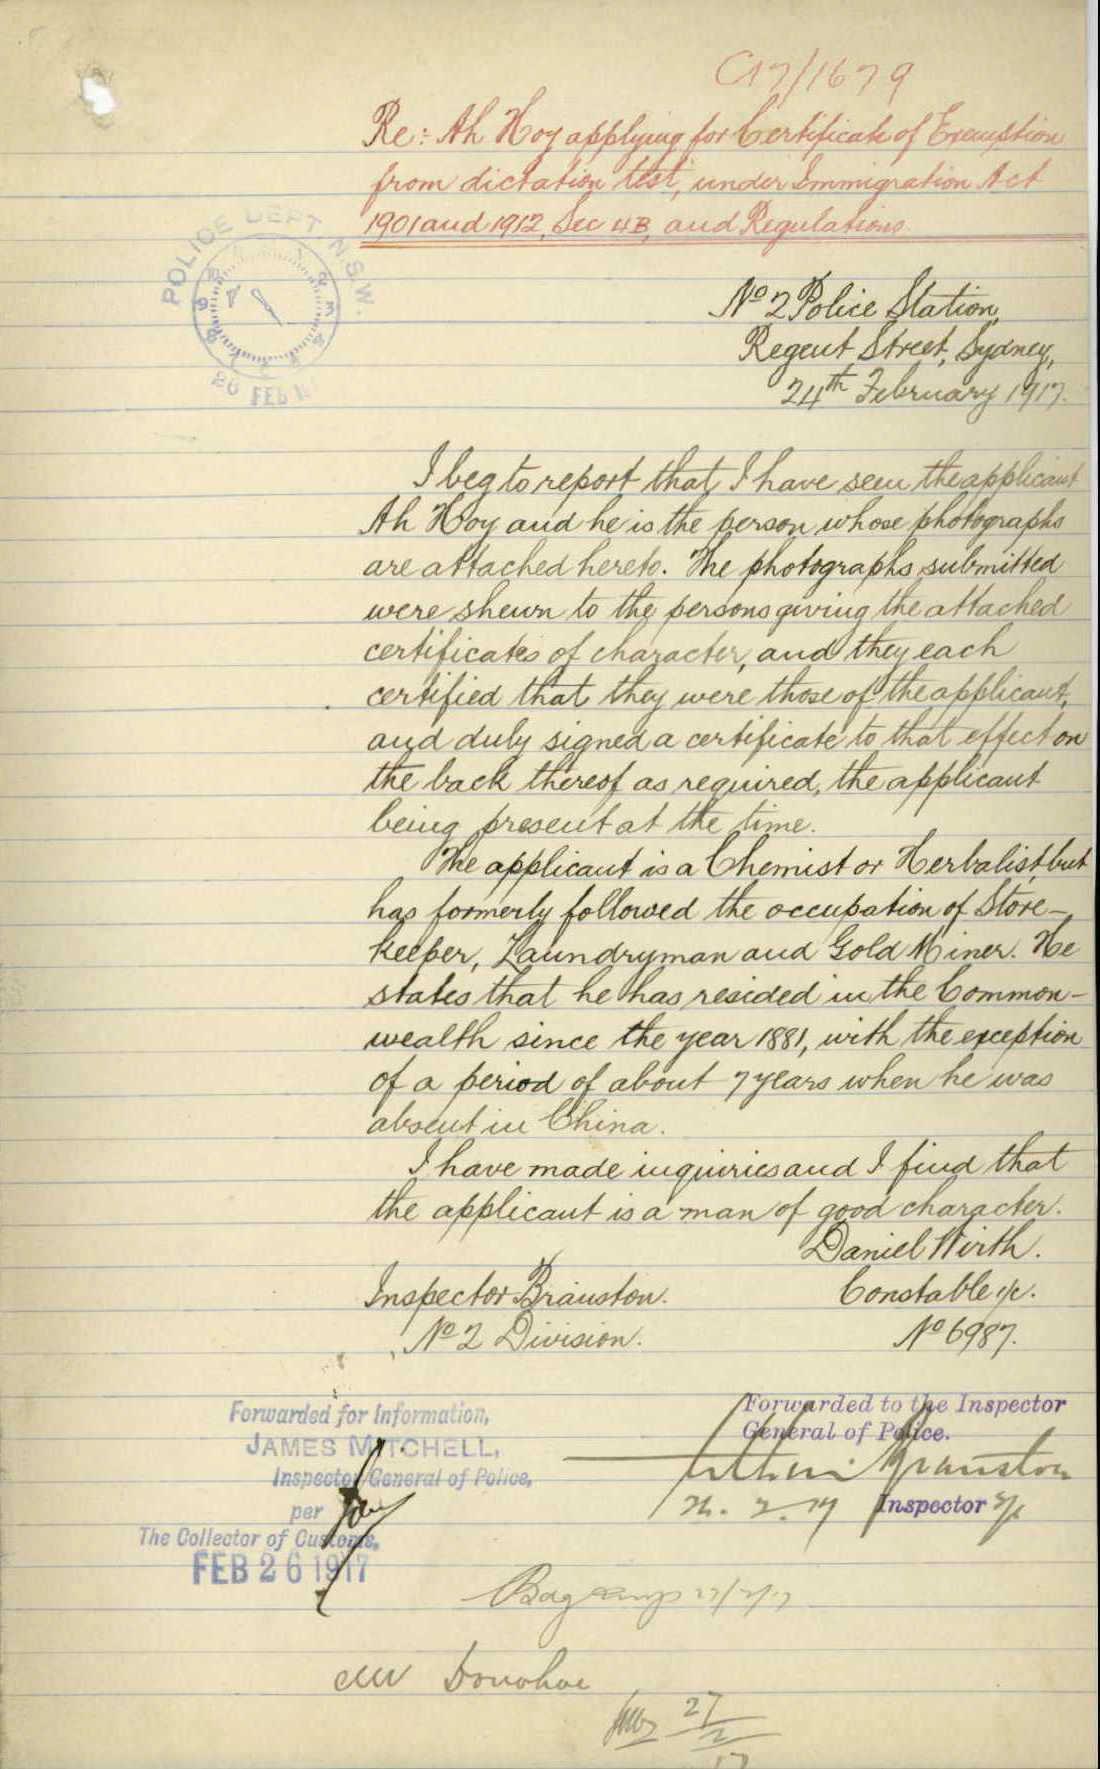 C17/1679
Re:- Ah Hoy applying for Certificate of Exemption
from dictation test, under Immigration Act
1901 and 1912, Sec 4B, and Regulations.
POLICE DEPT N.S.W.
26 FEB
No 2 Police Station,
Regent Street, Sydney,
24th February 1917.
I beg to report that I have seen the applicant
Ah Hoy and he is the person whose photographs
are attached hereto. The photographs submitted
were shewn to the persons giving the attached
certificates of character, and they each
certified that they were those of the applicant,
and duly signed a certificate to that effect on
the back thereof as required, the applicant
being present at the time.
The applicant is a Chemist or Herbalist, but
has formerly followed the occupation of Store-
keeper, Laundryman and Gold Miner. He
states that he has resided in the Common-
wealth since the year 1881, with the exception
of a period of about 7 years when he was
absent in China.
I have made inquiries and I find that
the applicant is a man of good character.
Daniel Wirth.
Constable 1/c.
No 6987.
Inspector Branston.
No 2 Division.
Forwarded to the Inspector
General of Police.
Branston
Inspector
Forwarded for Information,
JAMES MITCHELL,
Inspector General of Police,
per
The Collector of Customs,
FEB 26 1917
27/2/17
Mr Donohoe
27
2
17